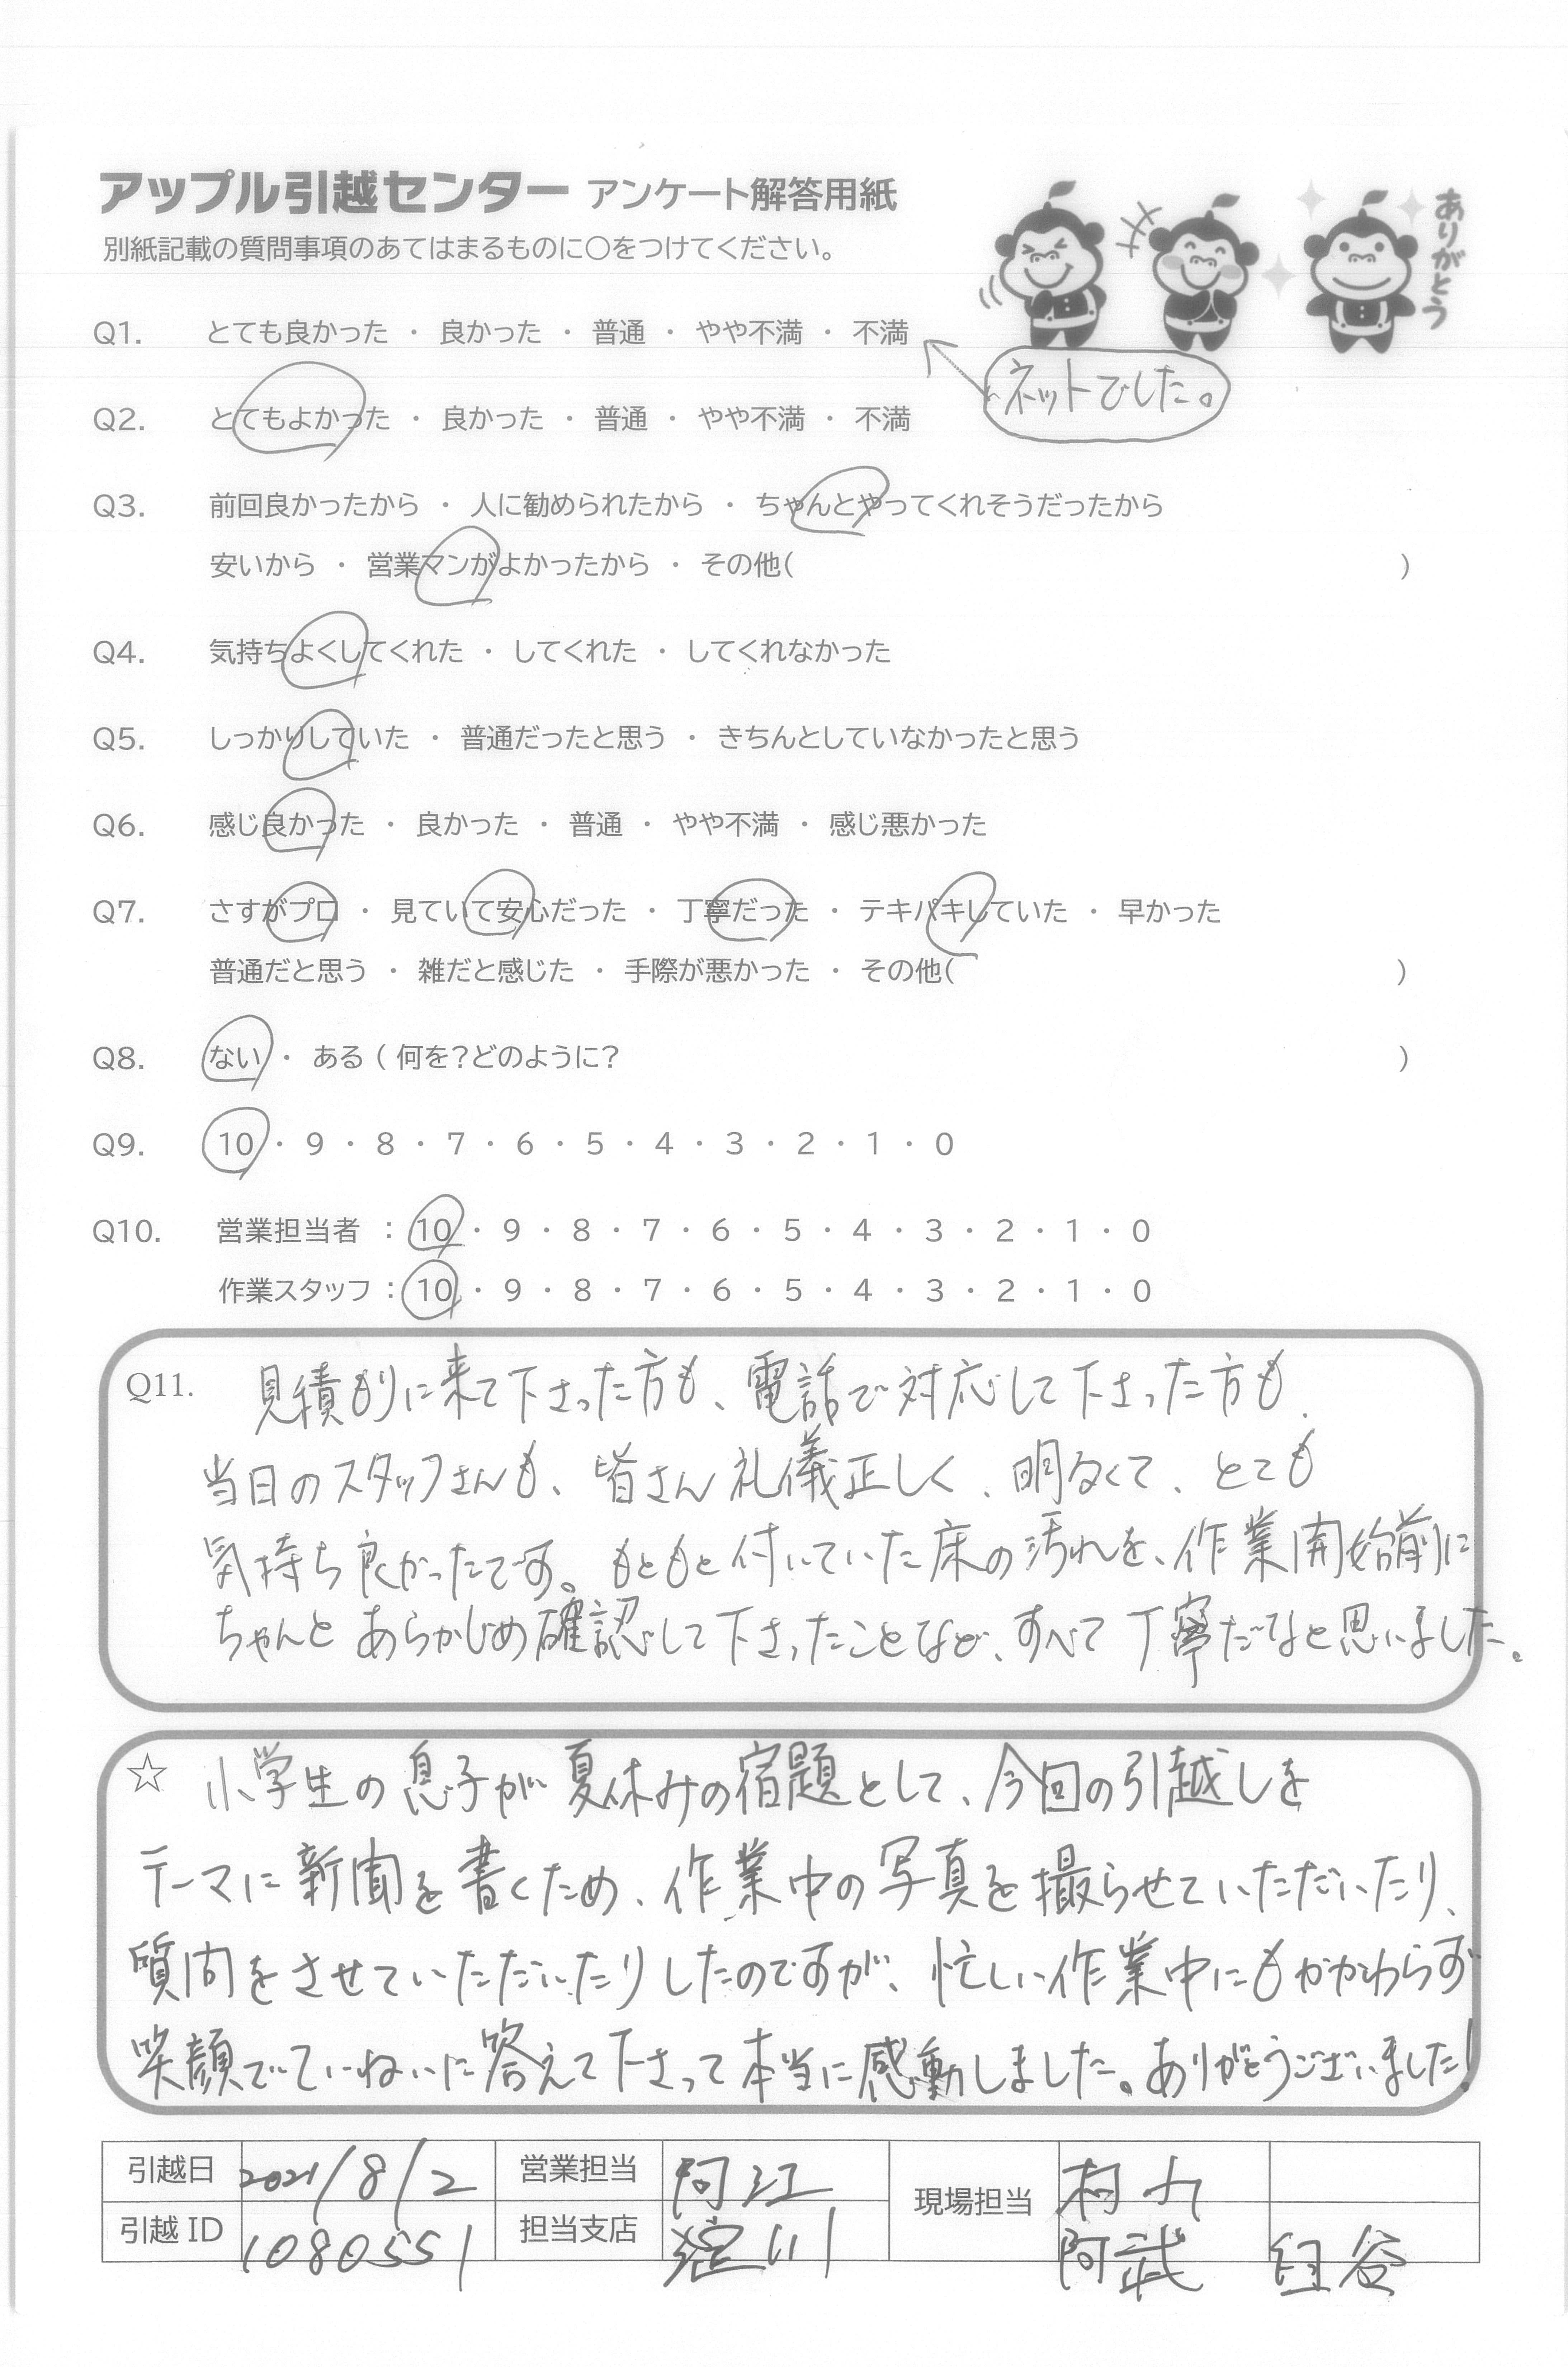 アップル引越センター アンケート解答用紙
別紙記載の質問事項のあてはまるものに〇をつけてください。
ありがとう
Q1. とても良かった ・ 良かった ・ 普通 ・ やや不満 ・ 不満
ネットでした。
Q2. とてもよかった ・ 良かった ・ 普通 ・ やや不満 ・ 不満
Q3. 前回良かったから ・ 人に勧められたから ・ ちゃんとやってくれそうだったから
安いから ・ 営業マンがよかったから ・ その他( )
Q4. 気持ちよくしてくれた ・ してくれた ・ してくれなかった
Q5. しっかりしていた ・ 普通だったと思う ・ きちんとしていなかったと思う
Q6. 感じ良かった ・ 良かった ・ 普通 ・ やや不満 ・ 感じ悪かった
Q7. さすがプロ ・ 見ていて安心だった ・ 丁寧だった ・ テキパキしていた ・ 早かった
普通だと思う ・ 雑だと感じた ・ 手際が悪かった ・ その他( )
Q8. ない ・ ある ( 何を?どのように? )
Q9. 10 ・ 9 ・ 8 ・ 7 ・ 6 ・ 5 ・ 4 ・ 3 ・ 2 ・ 1 ・ 0
Q10. 営業担当者 : 10 ・ 9 ・ 8 ・ 7 ・ 6 ・ 5 ・ 4 ・ 3 ・ 2 ・ 1 ・ 0
作業スタッフ : 10 ・ 9 ・ 8 ・ 7 ・ 6 ・ 5 ・ 4 ・ 3 ・ 2 ・ 1 ・ 0
Q11. 見積もりに来て下さった方も、電話で対応して下さった方も、
当日のスタッフさんも、皆さん礼儀正しく、明るくて、とても
気持ち良かったです。もともと付いていた床の汚れを、作業開始前に
ちゃんとあらかじめ確認して下さったことなど、すべて丁寧だなと思いました。
☆ 小学生の息子が夏休みの宿題として、今回の引越しを
テーマに新聞を書くため、作業中の写真を撮らせていただいたり、
質問をさせていただいたりしたのですが、忙しい作業中にもかかわらず
笑顔でていねいに答えて下さって本当に感動しました。ありがとうございました!
引越日 2021/8/2 営業担当 阿江 現場担当
引越ID 1080551 担当支店 阿武